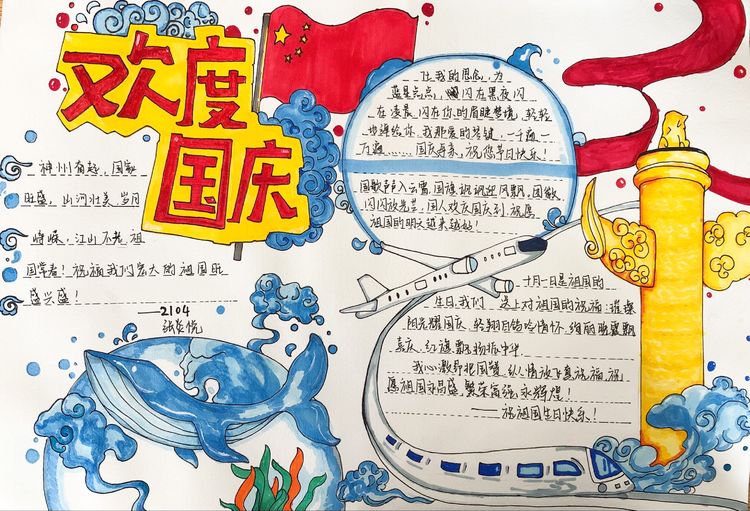 欢度
国庆
神州有起,国家
旺盛,山河壮美,岁月
峥嵘,江山不老,祖
国常春!祝福我们宏大的祖国旺
盛兴盛!
——2104
让我的思念,为
蓝星点点,闪在黑夜闪
在凌晨,闪在你的眉睫梦境,轻轻
也译给你,我那爱的琴键,一十遍
百遍……国庆寿素,祝您节日快乐!
国歌声声入云霄,国旗飒飒迎风飘,团徽
闪闪放光芒,国人欢庆国庆到,祝愿
祖国的明天越来越好!
十月一日是祖国的
生日,我们送上对祖国的祝福:
阳光耀国庆,轻翔白鸽冷情怀,绚丽晚霞飘
喜庆,红旗飘扬振中华
我心激昂把国赞,纵情放飞真祝福,祝
愿祖国永昌盛,繁荣富强永辉煌!
——祝祖国生日快乐!